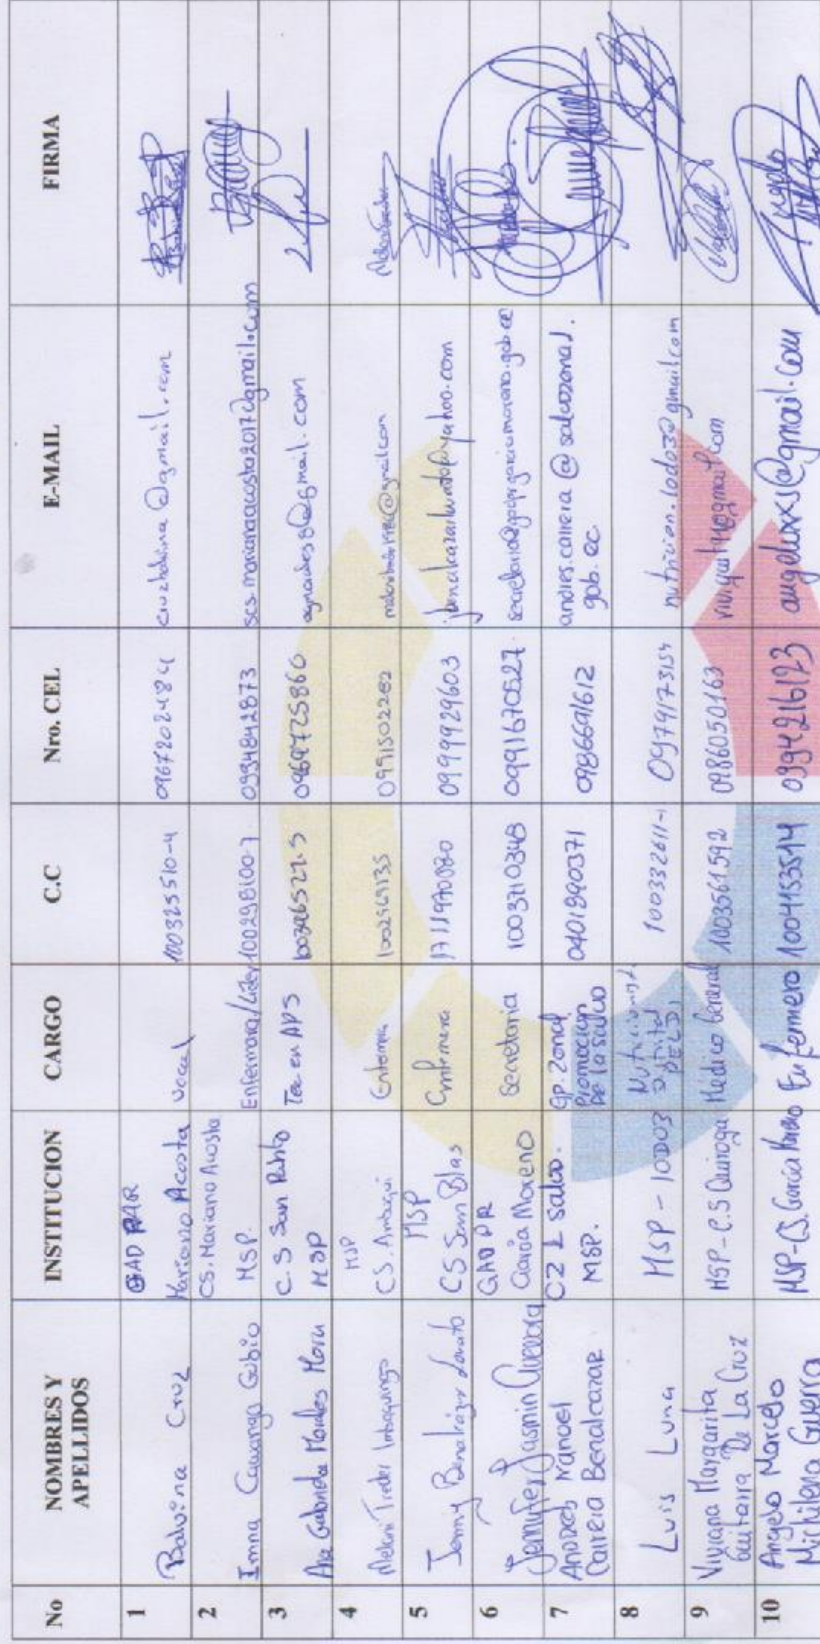 No NOMBRES Y APELLIDOS INSTITUCION CARGO C.C Nro. CEL E-MAIL FIRMA
1 Balvina Cruz GAD PAR Mariano Acosta vocal 100325510-4 0967202484 cruzbalvina@gmail.com
2 Imna Cauango Gubio CS. Mariano Acosta MSP. Enfermera/Lider 100298100-7 0934842873 scs.marianaacosta2017@gmail.com
3 Ana Gabriela Morales Mora C.S San Pablo MSP Tec en APS 100346527-5 0969725866 agmorales86@gmail.com
4 Melani Treder MSP CS. Ambuqui Enferma 1002569135 0991502262
5 Jenny Benalcázar MSP CS San Blas 1711970980 0999929603
6 Jennyfer Jasmin Guevara GAD PR García Moreno Secretaria 1003710348 0991670527
7 Andres Manoel Carrera Benalcazar CZ 1 salud. MSP. Gp. Zonal Promocion de la salud 0401890371 0986691612 andres.carrera@saludzona1.gob.ec
8 Luis Luna MSP - 10D03 Nutricionista 100332611-1 0979173154 nutricion.10d03@gmail.com
9 Viviana Margarita Guitarra De La Cruz MSP-C.S Quiroga Médico General 1003561592 0986050163
10 Angelo Marcelo Michilena Guerra MSP-CS. García Moreno Enfermero 1004153514 0994216123 angeluxxs@gmail.com